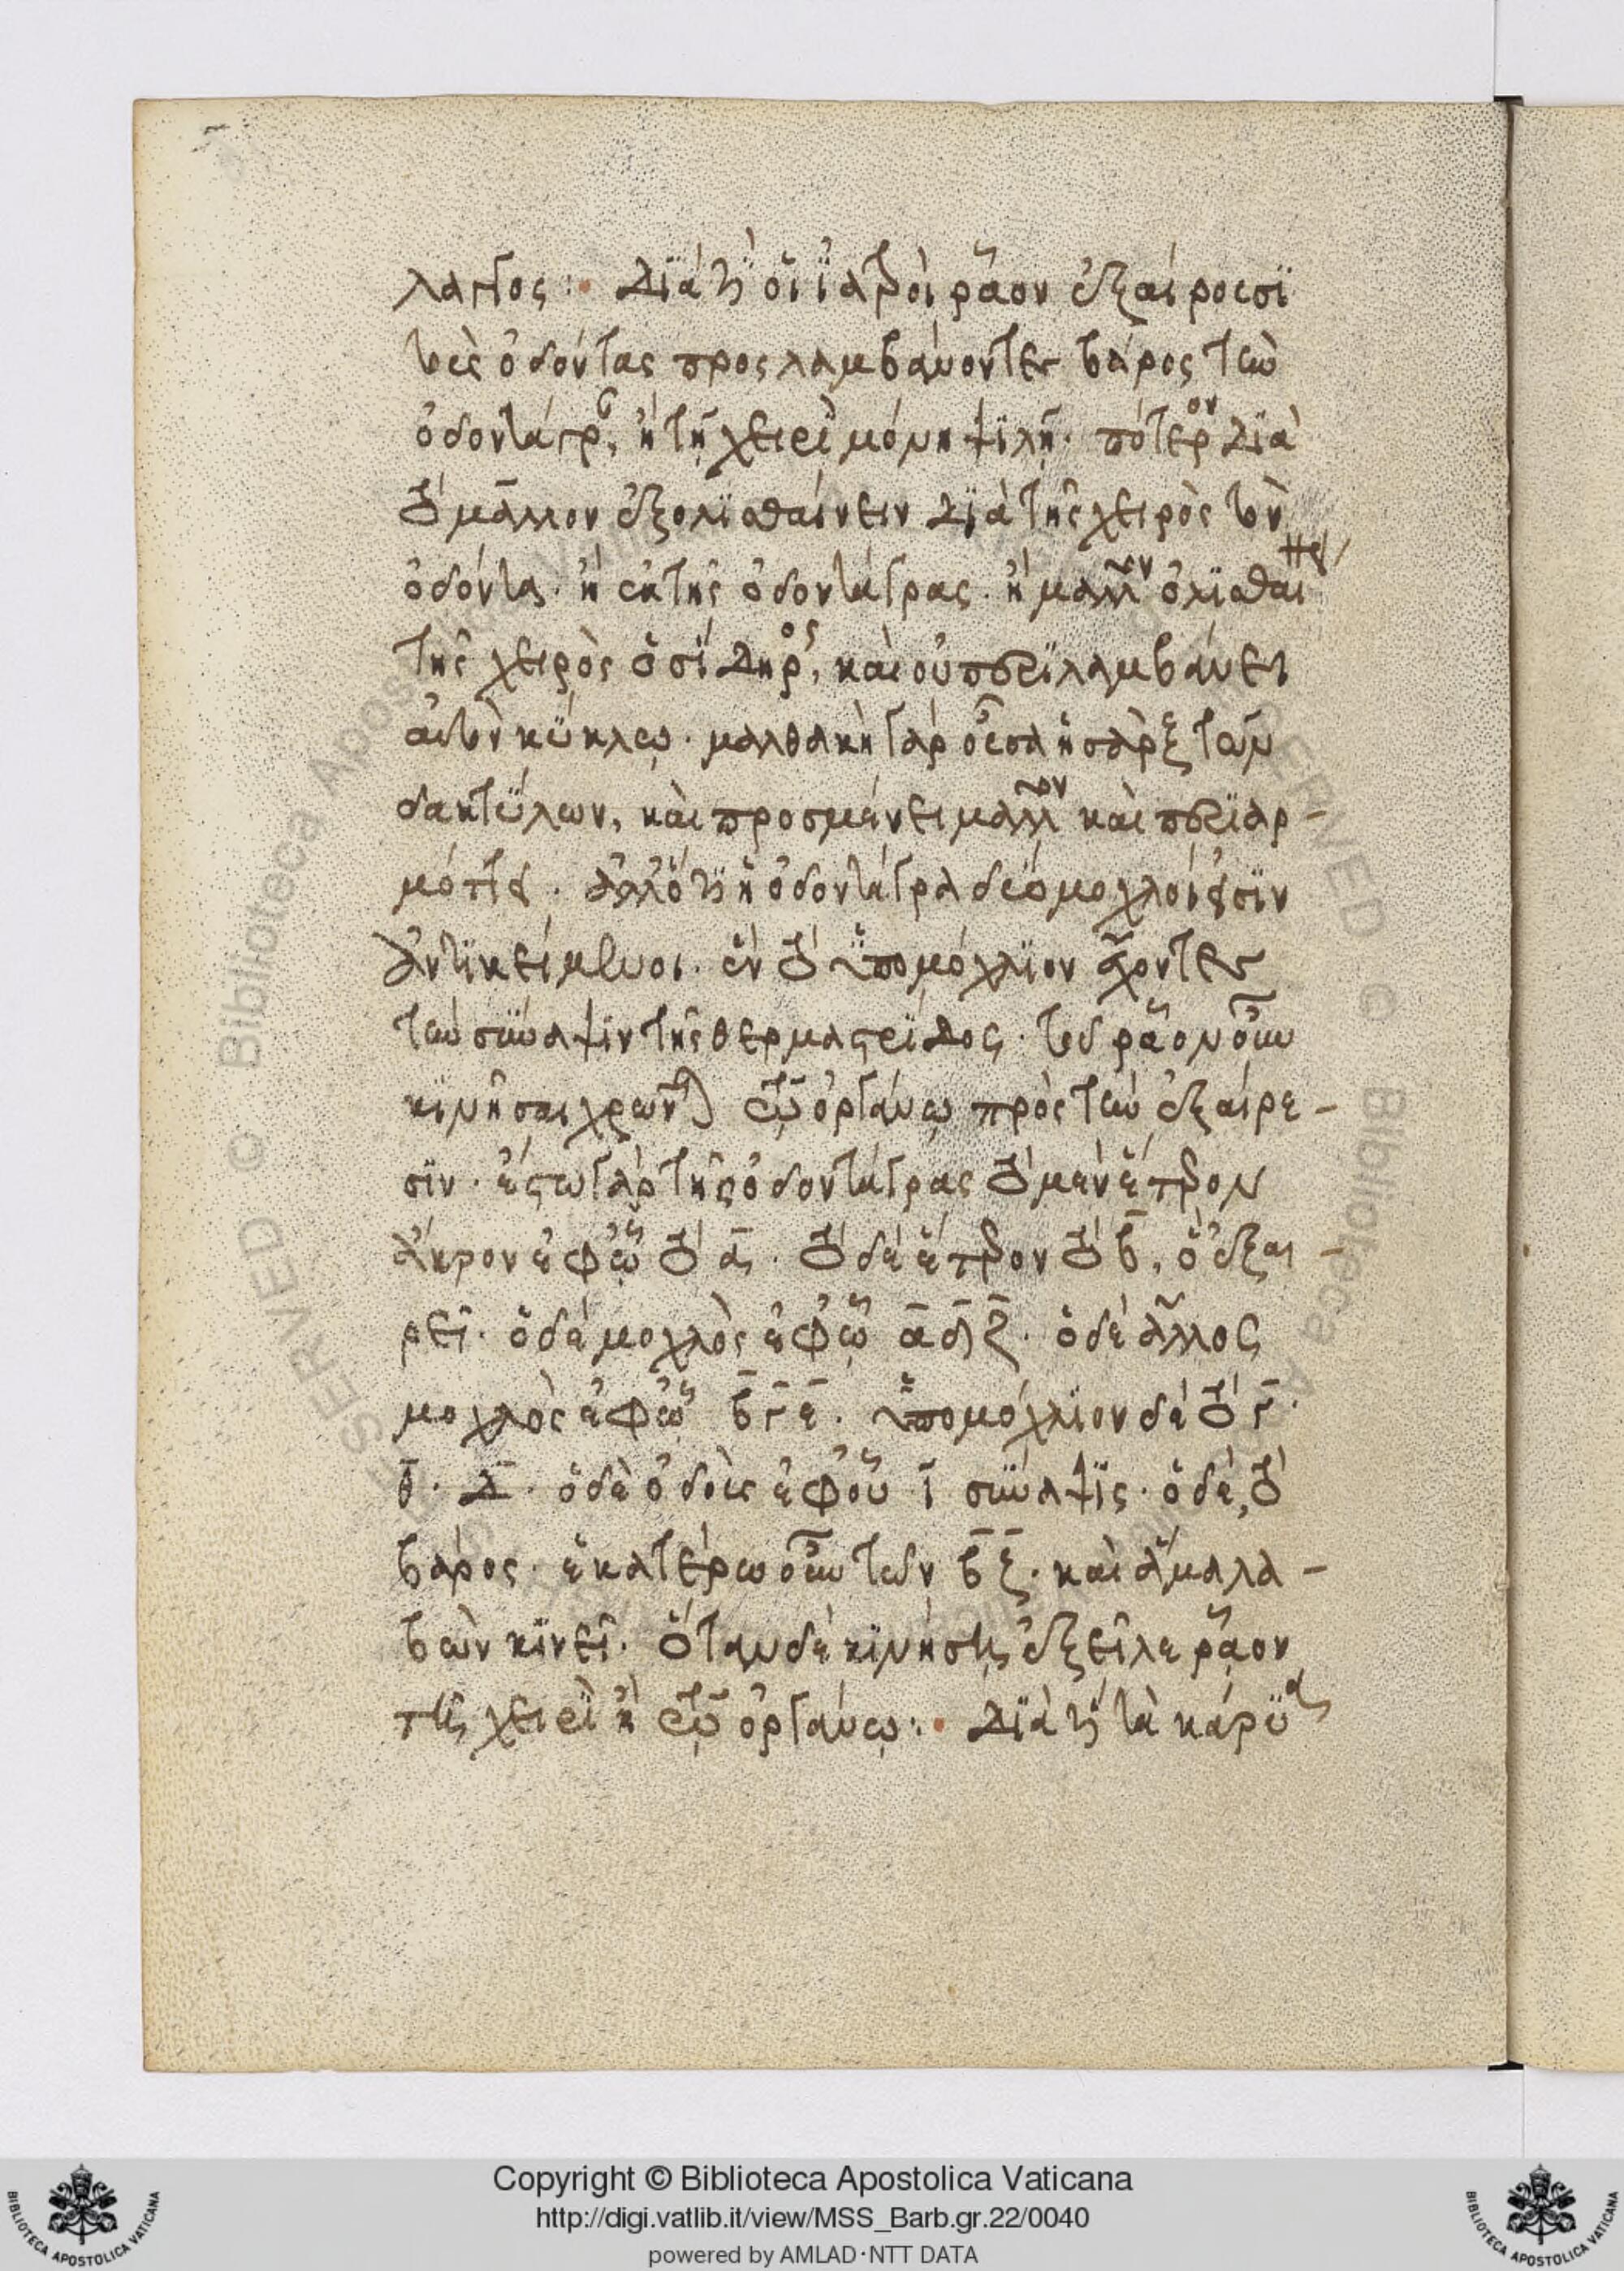 λαντος:· Διὰ τί οἱ ἰατροὶ ῥᾷον ἐξαίρουσι
τοὺς ὀδόντας προσλαμβάνοντες βάρος τὴν
ὀδοντάγραν, ἢ τῇ χειρὶ μόνῃ ψιλῇ. πότερον διὰ
τὸ μᾶλλον ἐξολισθαίνειν διὰ τῆς χειρὸς τὸν
ὀδόντα. ἢ ἐκ τῆς ὀδοντάγρας. ἢ μᾶλλον ὀλισθαί
τῆς χειρὸς ὁ σίδηρος, καὶ οὐ περιλαμβάνει
αὐτὸν κύκλῳ. μαλθακὴ γὰρ οὖσα ἡ σὰρξ τῶν
δακτύλων, καὶ προσμένει μᾶλλον καὶ περιαρ-
μόττει. ἀλλ' ὅτι ἡ ὀδοντάγρα δύο μοχλοί εἰσιν
ἀντικείμενοι. ἓν τὸ ὑπομόχλιον ἔχοντες
τὴν σύναψιν τῆς θερμαστρίδος. τοῦ ῥᾷον οὖν
κινῆσαι χρῶνται τῷ ὀργάνῳ πρὸς τὴν ἐξαίρε-
σιν. ἔστω γὰρ τῆς ὀδοντάγρας τὸ μὲν ἕτερον
ἄκρον ἐφ' ᾧ τὸ α. τὸ δὲ ἕτερον τὸ β, ὃ ἐξαι-
ρεῖ. ὁ δὲ μοχλὸς ἐφ' ᾧ α δ ζ. ὁ δὲ ἄλλος
μοχλὸς ἐφ' ᾧ β γ ε. ὑπομόχλιον δὲ τὸ γ.
θ. δ. ὁ δὲ ὀδοὺς ἐφ' οὗ ι σύναψις. ὁ δὲ, τὸ
βάρος. ἑκατέρῳ οὖν τῶν β ζ. καὶ ἅμα λα-
βὼν κινεῖ. ὅταν δὲ κινήσῃ, ἐξεῖλε ῥᾷον
τῇ χειρὶ ἢ τῷ ὀργάνῳ:· Διὰ τί τὰ κάρυα
Copyright © Biblioteca Apostolica Vaticana
http://digi.vatlib.it/view/MSS_Barb.gr.22/0040
powered by AMLAD·NTT DATA